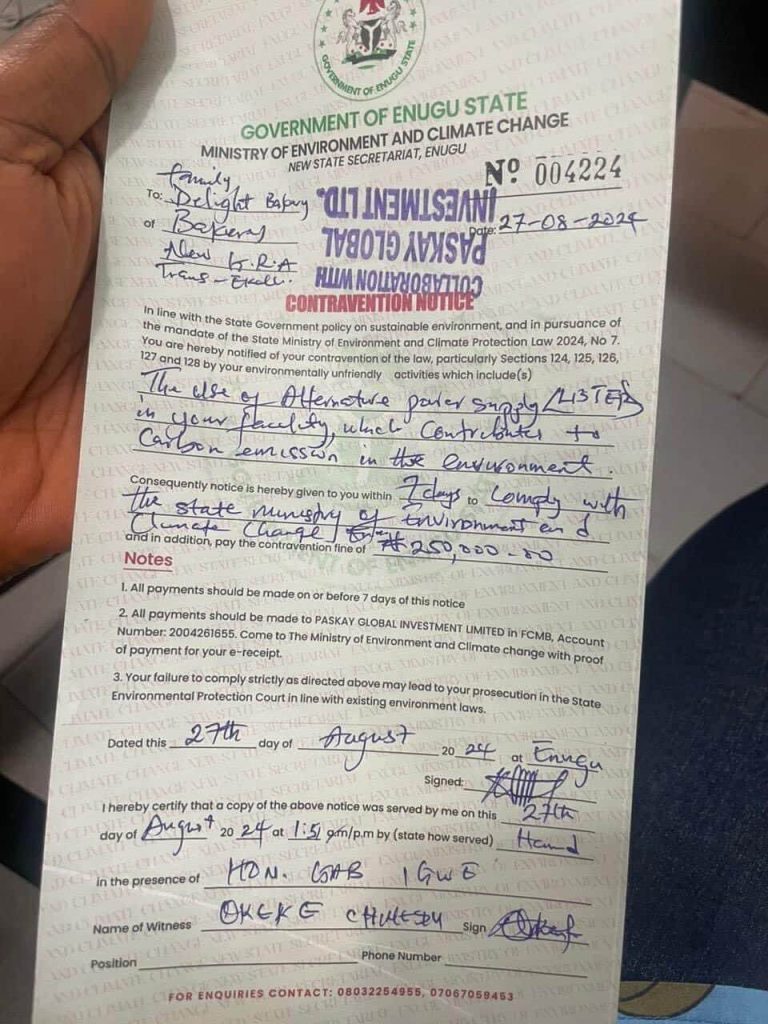 GOVERNMENT OF ENUGU STATE
GOVERNMENT OF ENUGU STATE
MINISTRY OF ENVIRONMENT AND CLIMATE CHANGE
NEW STATE SECRETARIAT, ENUGU
Nº 004224
family
To: Delight Bakery
of Bakery
Date: 27-08-2024
New G.R.A
Trans-Ekulu.
COLLABORATION WITH
PASKAY GLOBAL
INVESTMENT LTD.
CONTRAVENTION NOTICE
In line with the State Government policy on sustainable environment, and in pursuance of
the mandate of the State Ministry of Environment and Climate Protection Law 2024, No 7.
You are hereby notified of your contravention of the law, particularly Sections 124, 125, 126,
127 and 128 by your environmentally unfriendly activities which include(s)
The use of Alternative power supply (LISTER)
in your facility, which contributes to
Carbon emission in the environment.
Consequently notice is hereby given to you within 7 days to comply with
the state ministry of Environment and
Climate Change
and in addition, pay the contravention fine of ₦250,000-00
Notes
1. All payments should be made on or before 7 days of this notice
2. All payments should be made to PASKAY GLOBAL INVESTMENT LIMITED in FCMB, Account
Number: 2004261655. Come to The Ministry of Environment and Climate change with proof
of payment for your e-receipt.
3. Your failure to comply strictly as directed above may lead to your prosecution in the State
Environmental Protection Court in line with existing environment laws.
Dated this 27th day of August 2024 at Enugu
Signed:
I hereby certify that a copy of the above notice was served by me on this 27th
day of August 2024 at 1:51 a.m/p.m by (state how served) Hand
in the presence of HON. GAB IGWE
Name of Witness OKEKE Sign
Position Phone Number
FOR ENQUIRIES CONTACT: 08032254955, 07067059453